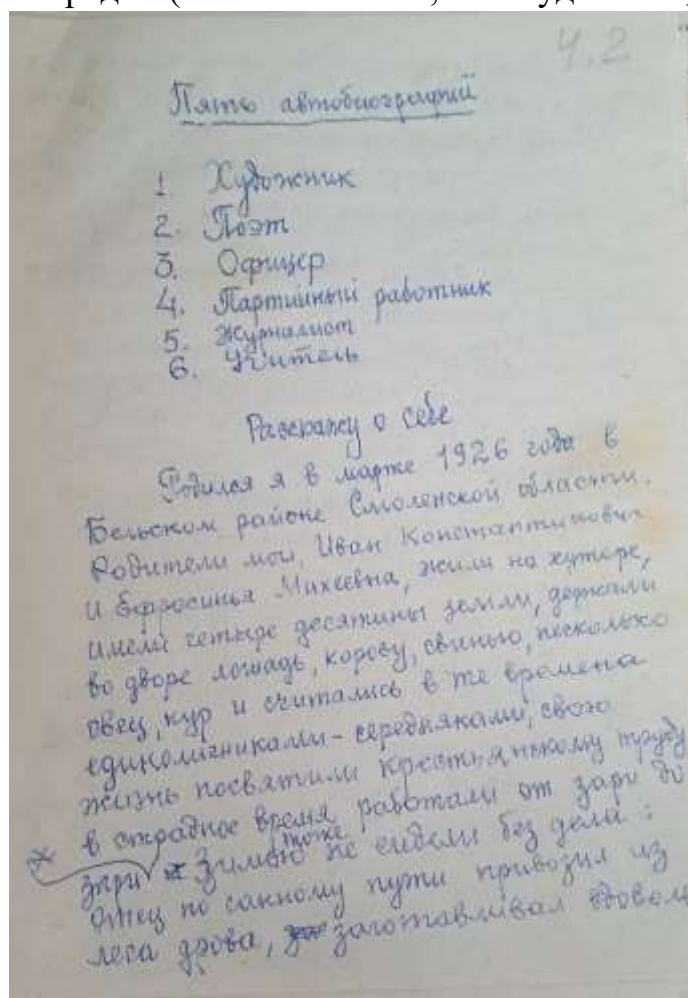 4.2
Пять автобиографий
1. Художник
2. Поэт
3. Офицер
4. Партийный работник
5. Журналист
6. Учитель
Расскажу о себе
Родился я в марте 1926 года в
Бельском районе Смоленской области.
Родители мои, Иван Константинович
и Ефросинья Михеевна, жили на хуторе,
имели четыре десятины земли, держали
во дворе лошадь, корову, свинью, несколько
овец, кур и считались в те времена
единоличниками-середняками, свою
жизнь посвятили крестьянскому труду
в страдное время работали от зари до
зари. Зимою тоже не сидели без дела:
отец по санному пути привозил из
леса дрова, заготавливал вдоволь